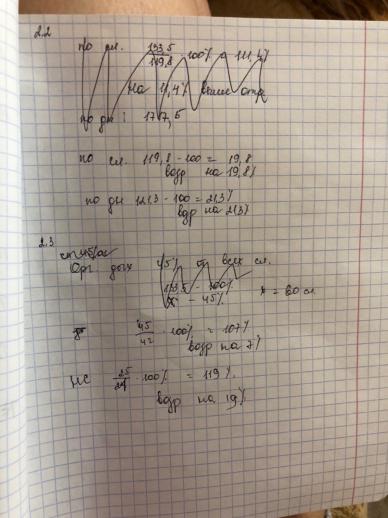 2.2
по сл. 133,5 / 119,8 · 100% = 111,4%
на 11,4% выше
по дн: 177,5
по сл. 119,8 - 100 = 19,8
возр на 19,8%
по дн 121,3 - 100 = 21,3%
возр на 21,3%
2.3
Орг дых 45% всех сл.
133,5 - 100%
x - 45%
x = 60 сл
45/42 · 100% = 107%
возр на 7%
НС 25/21 · 100% = 119%
возр на 19%